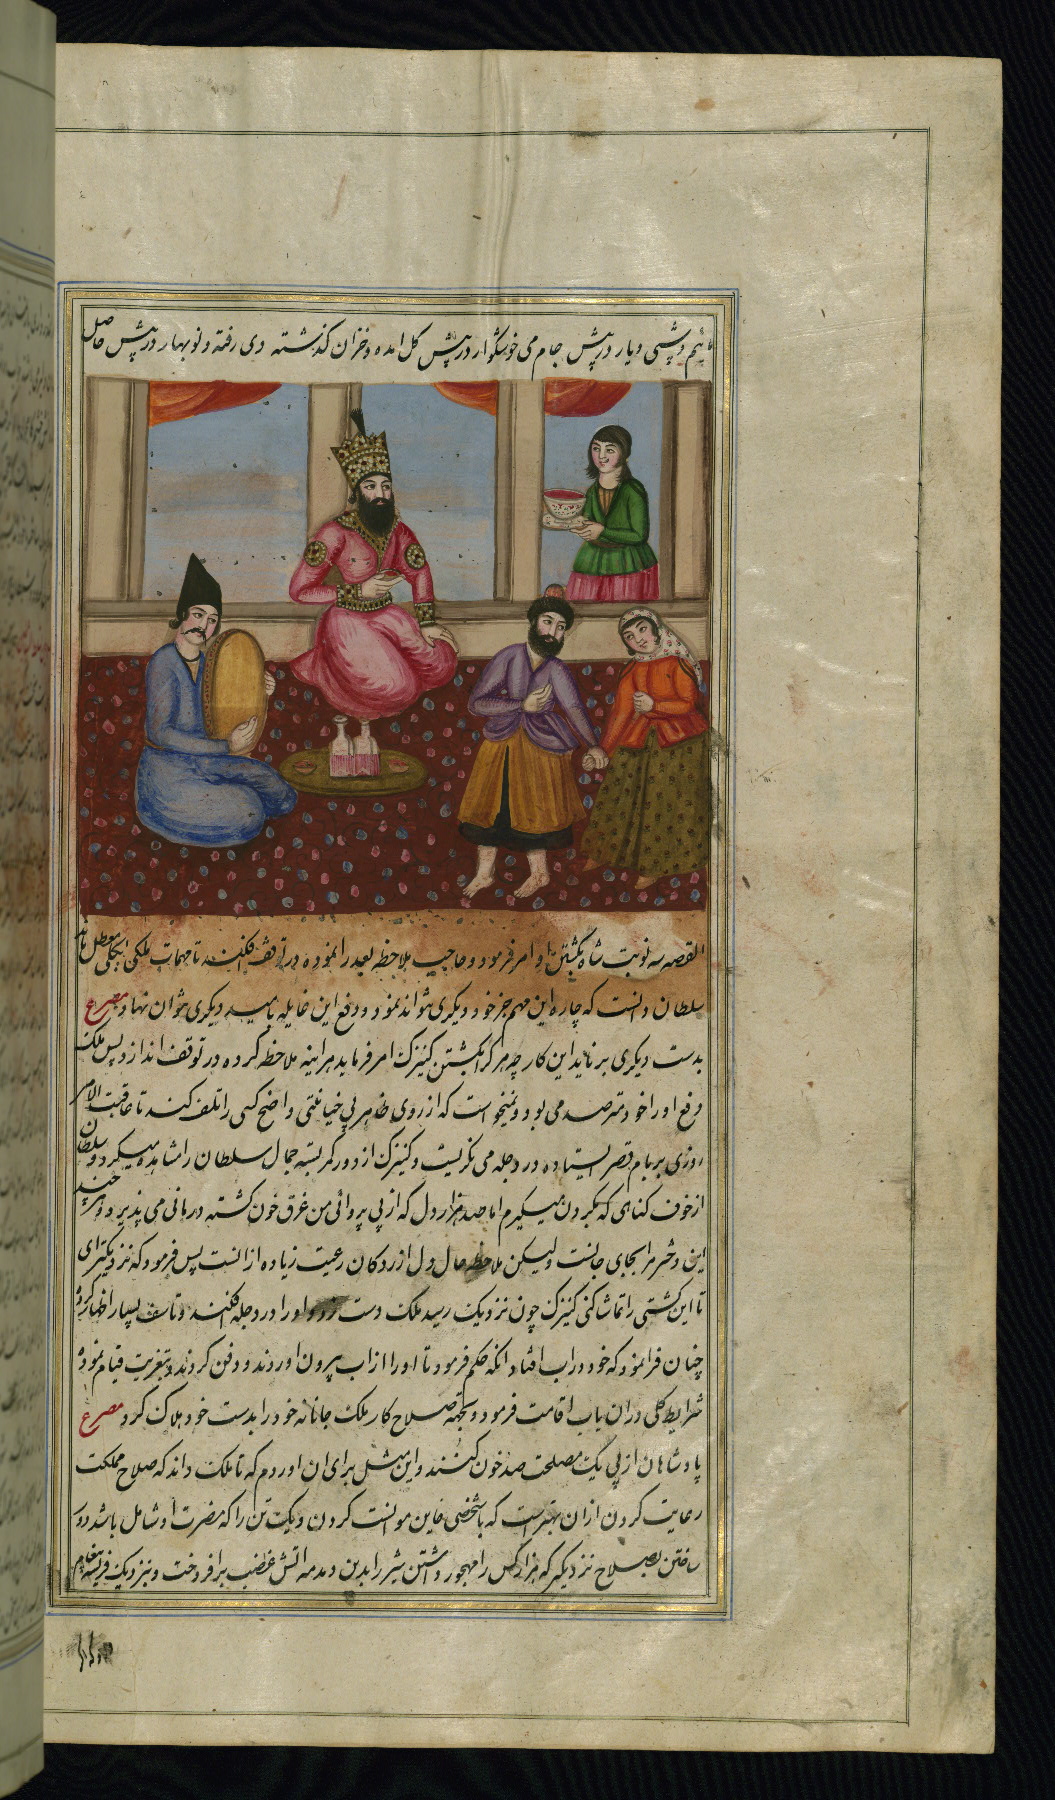 مائیم و شبی و یار در پیش جام می خوشگوار در پیش گل امده و خزان گذشته دی رفته و نوبهار در پیش حاصل
القصه سه نوبت شاه بکشتن او امر فرمود و حاجب ملاحظه بعد را نموده در توقف فکند تا مهمات ملکی بکلی معطل ماند
سلطان دانست که چاره این مهم جز خود دیگری نتواند نمود و دفع این غایله بامید دیگری نتوان نهاد مصرع
بدست دیگری برناید این کار چه هر کرا بکشتن کنیزک امر فرماید هراینه ملاحظه کرده در توقف اندازد پس ملک
دفع او را خود مترصد می بود و نمیخواست که از روی ظاهر بی خیانتی واضح کسی را تلف کند تا عاقبت الامر
روزی بر بام قصر ایستاده در دجله می نگریست و کنیزک از دور کمر بسته جمال سلطان را مشاهده میکرد سلطان
از خوف گناهی که بگردن میگیرم اما صد هزار دل که از بی پروائی من غرق خون گشته درمانی می پذیرد و هر چند
این دختر مرا بجای جانست ولیکن ملاحظه حال دل ازردگان رعیت زیاده ازانست پس فرمود که نزدیکتر ای
تا این کشتی را تماشا کنی کنیزک چون نزدیک رسید ملک دست زد و او را در دجله افکند و تاسف بسیار اظهار کرده
چنان فرا نمود که خود در اب افتاد انگه حکم فرمود تا او را از اب بیرون اوردند و دفن کردند و بتعزیت قیام نموده
شرایط کلی دران باب اقامت فرمود و بجهة صلاح کار ملک جانانه خود را بدست خود هلاک کرد مصرع
پادشاهان از پی یک مصلحت صد خون کنند و این مثل برای ان اوردم که تا ملک داند که صلاح مملکت
رعایت کردن ازان بهتر است که با شخصی خاین موانست کردن و یک تن را که مضرت او شامل باشد دور
ساختن بصلاح نزدیکتر که هزار کس را مهجور داشتن شیر را بدین دمدمه اتش غضب برافروخت و بنزدیک فریسه پیغام